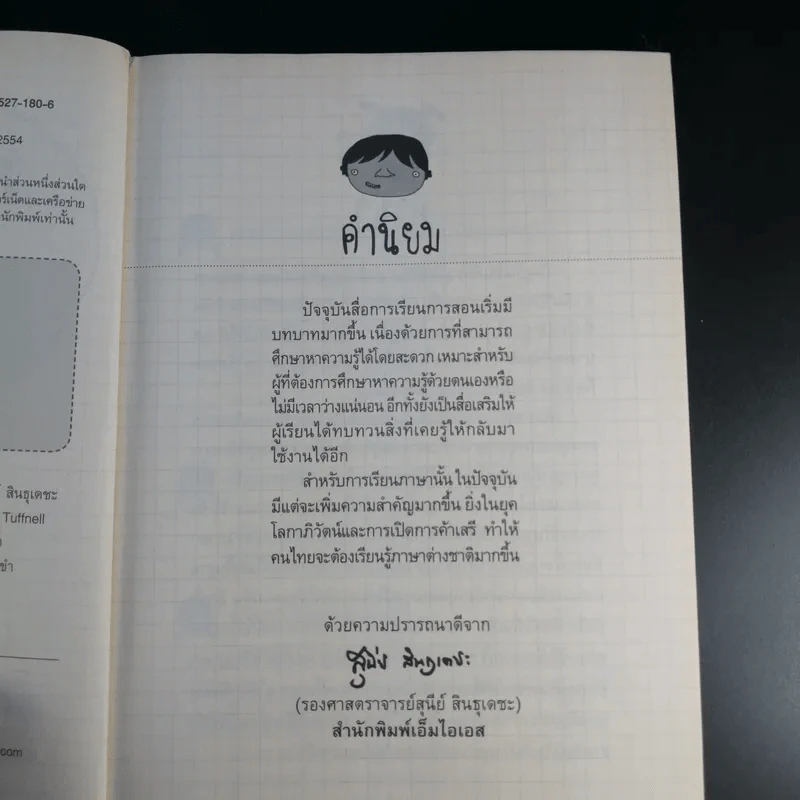 527-180-6
2554
นำส่วนหนึ่งส่วนใด
ร์เน็ตและเครือข่าย
นักพิมพ์เท่านั้น
สินธุเดชะ
Tuffnell
com
คำนิยม
ปัจจุบันสื่อการเรียนการสอนเริ่มมี
บทบาทมากขึ้น เนื่องด้วยการที่สามารถ
ศึกษาหาความรู้ได้โดยสะดวก เหมาะสำหรับ
ผู้ที่ต้องการศึกษาหาความรู้ด้วยตนเองหรือ
ไม่มีเวลาว่างแน่นอน อีกทั้งยังเป็นสื่อเสริมให้
ผู้เรียนได้ทบทวนสิ่งที่เคยรู้ให้กลับมา
ใช้งานได้อีก
สำหรับการเรียนภาษานั้น ในปัจจุบัน
มีแต่จะเพิ่มความสำคัญมากขึ้น ยิ่งในยุค
โลกาภิวัตน์และการเปิดการค้าเสรี ทำให้
คนไทยจะต้องเรียนรู้ภาษาต่างชาติมากขึ้น
ด้วยความปรารถนาดีจาก
(รองศาสตราจารย์สุนีย์ สินธุเดชะ)
สำนักพิมพ์เอ็มไอเอส